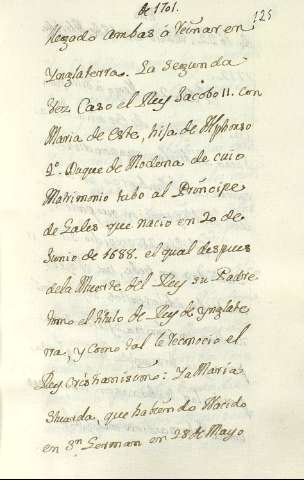 de 1701.
125
llegado ambas â Reinar en
Ynglaterra. La segunda
vez Caso el Rey Jacobo II. con
Maria de Este, hija de Alfonso
2º. Duque de Modena de cuio
Matrimonio tubo al Principe
de Gales que nacio en 20 de
Junio de 1688. el qual despues
dela Muerte del Rey su Padre
tomo el titulo de Rey de Ynglate
rra, y como tal le reconocio el
Rey Cristianisimo: Ya Maria
Stuarda, que habiendo Nacido
en Sn. German en 28 de Mayo